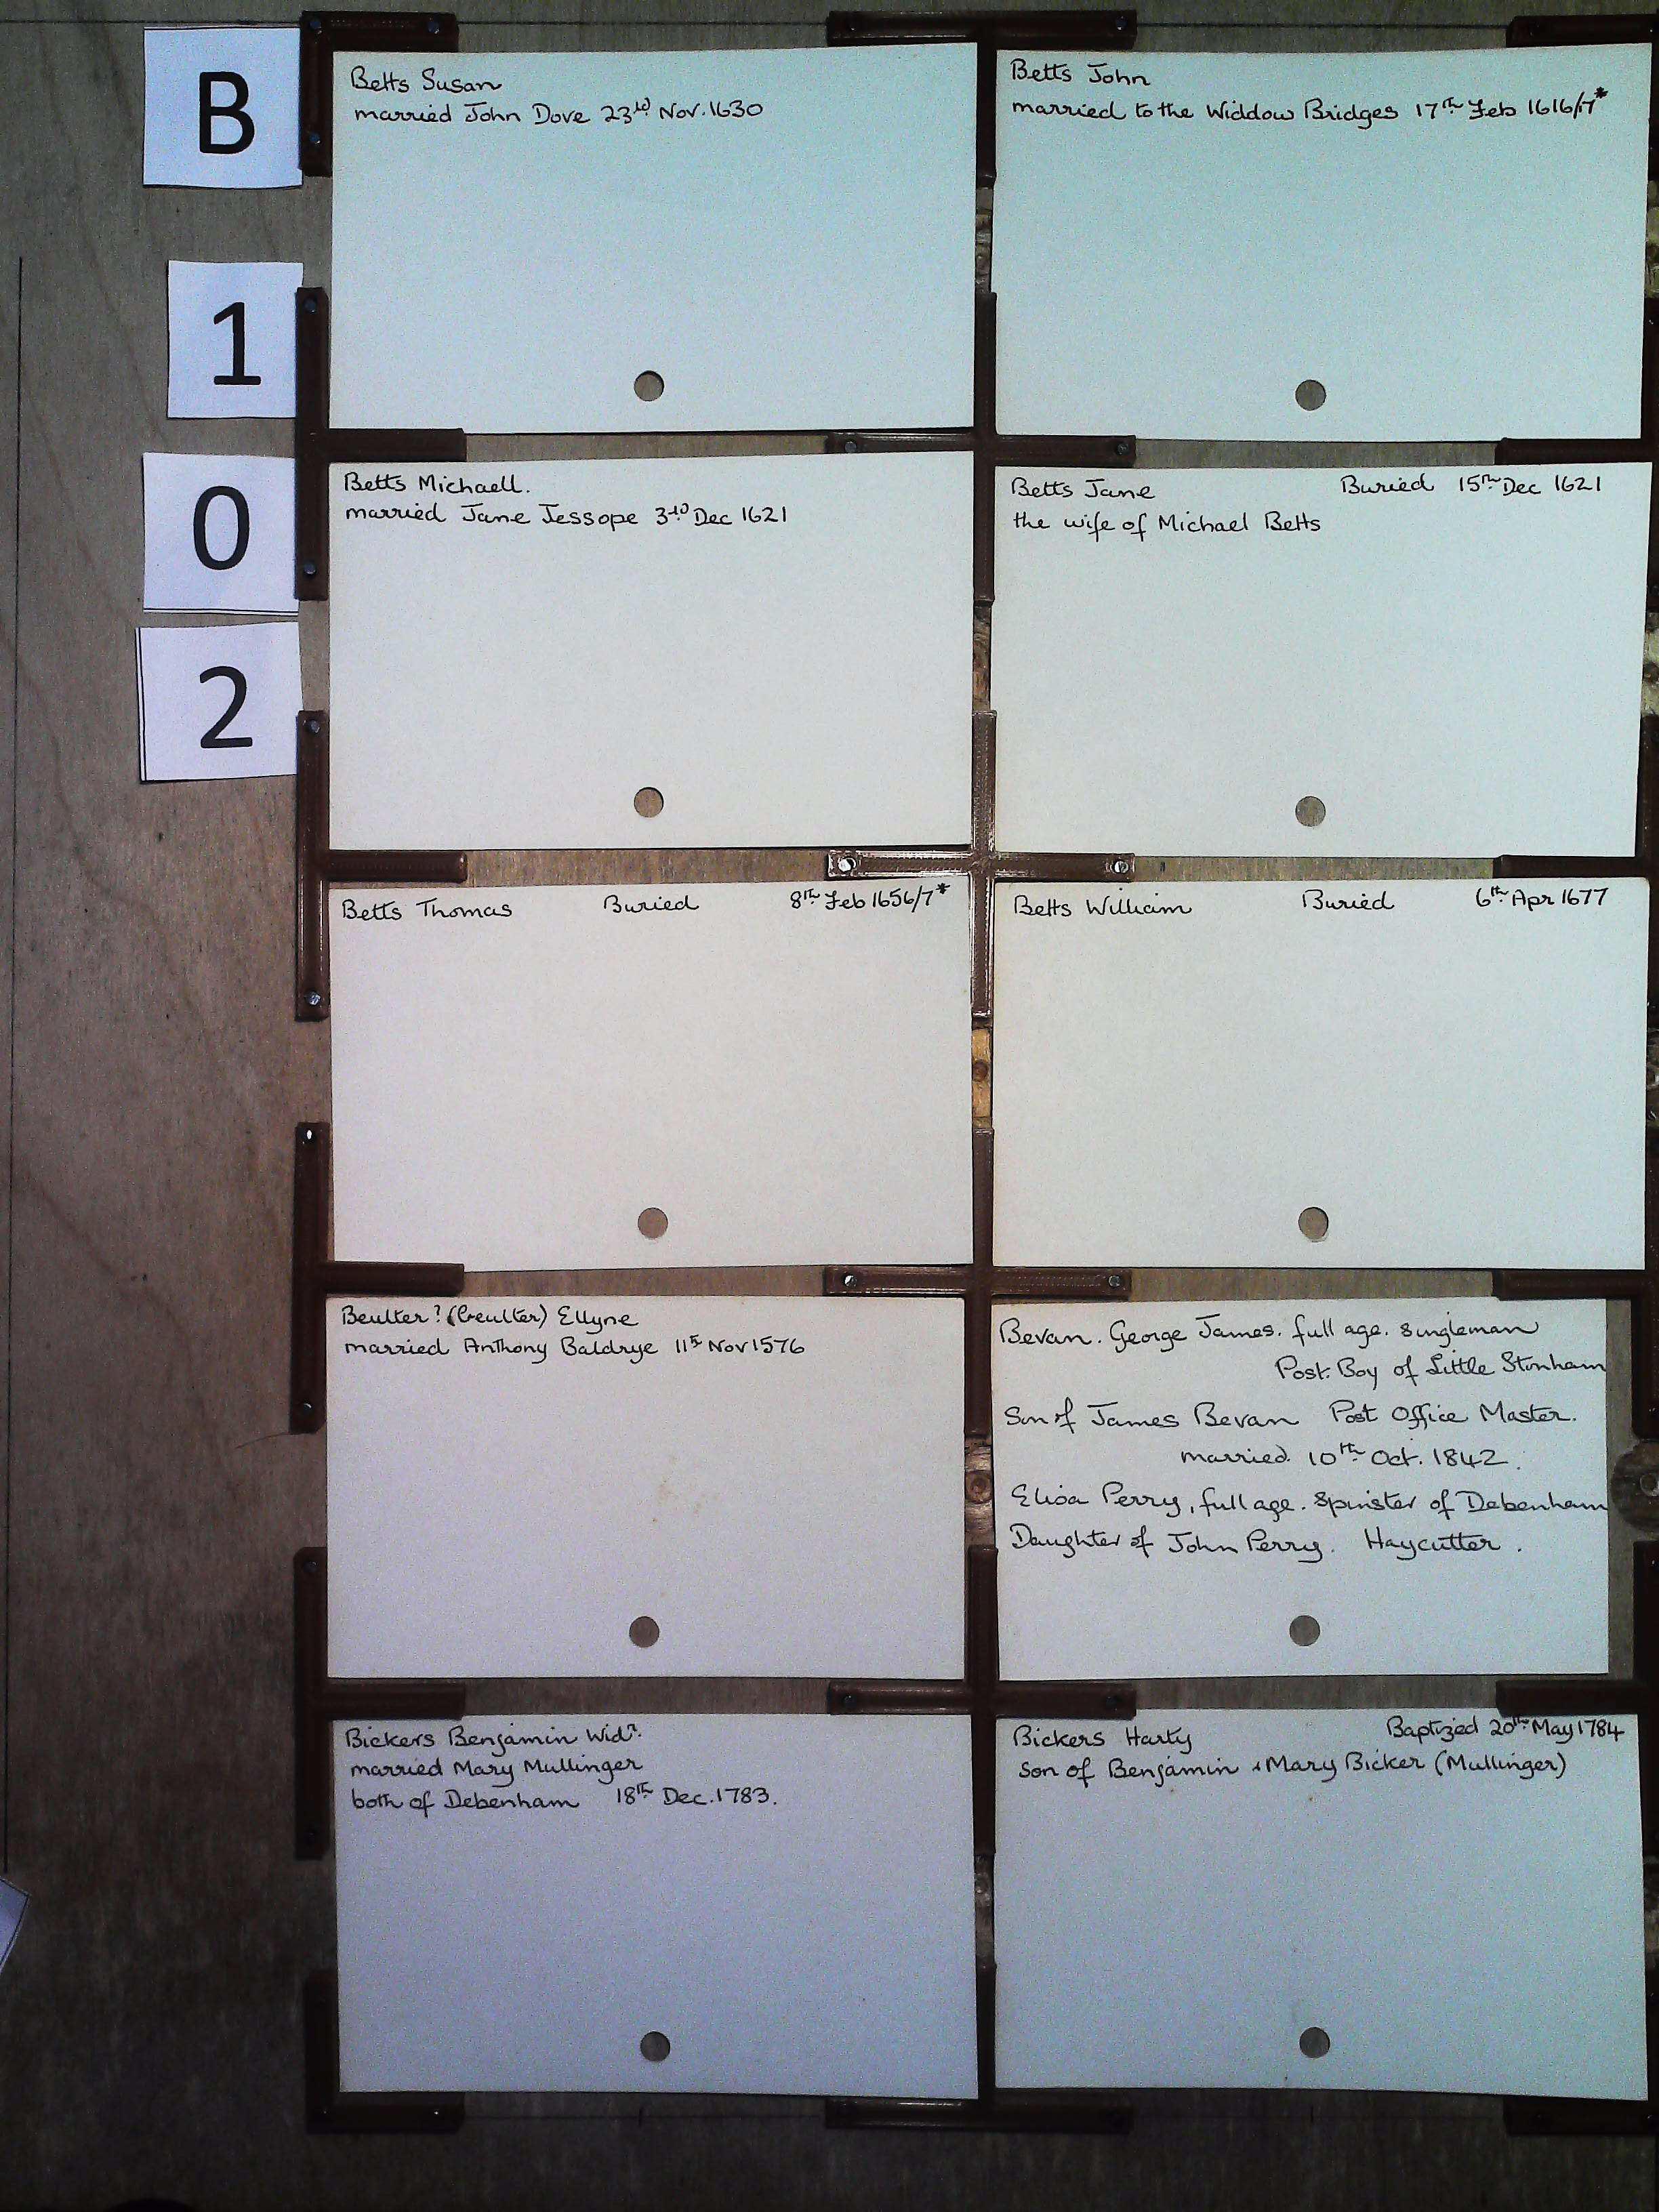 B
1
0
2
Betts Susan
married John Dove 23rd Nov. 1630
Betts John
married to the Widdow Bridges 17th Feb 1616/7*
Betts Michaell.
married Jane Jessope 3rd Dec 1621
Betts Jane Buried 15th Dec 1621
the wife of Michael Betts
Betts Thomas Buried 8th Feb 1656/7*
Betts William Buried 6th Apr 1677
Beulter? (Ceulter) Ellyne
married Anthony Baldrye 11th Nov 1576
Bevan. George James. full age. singleman
Post. Boy of Little Stonham
Son of James Bevan Post Office Master.
married 10th Oct. 1842.
Elisa Perry, full age. Spinster of Debenham
Daughter of John Perry. Haycutter.
Bickers Benjamin Widr.
married Mary Mullinger
both of Debenham 18th Dec. 1783.
Bickers Harty Baptized 20th May 1784
son of Benjamin & Mary Bicker (Mullinger)